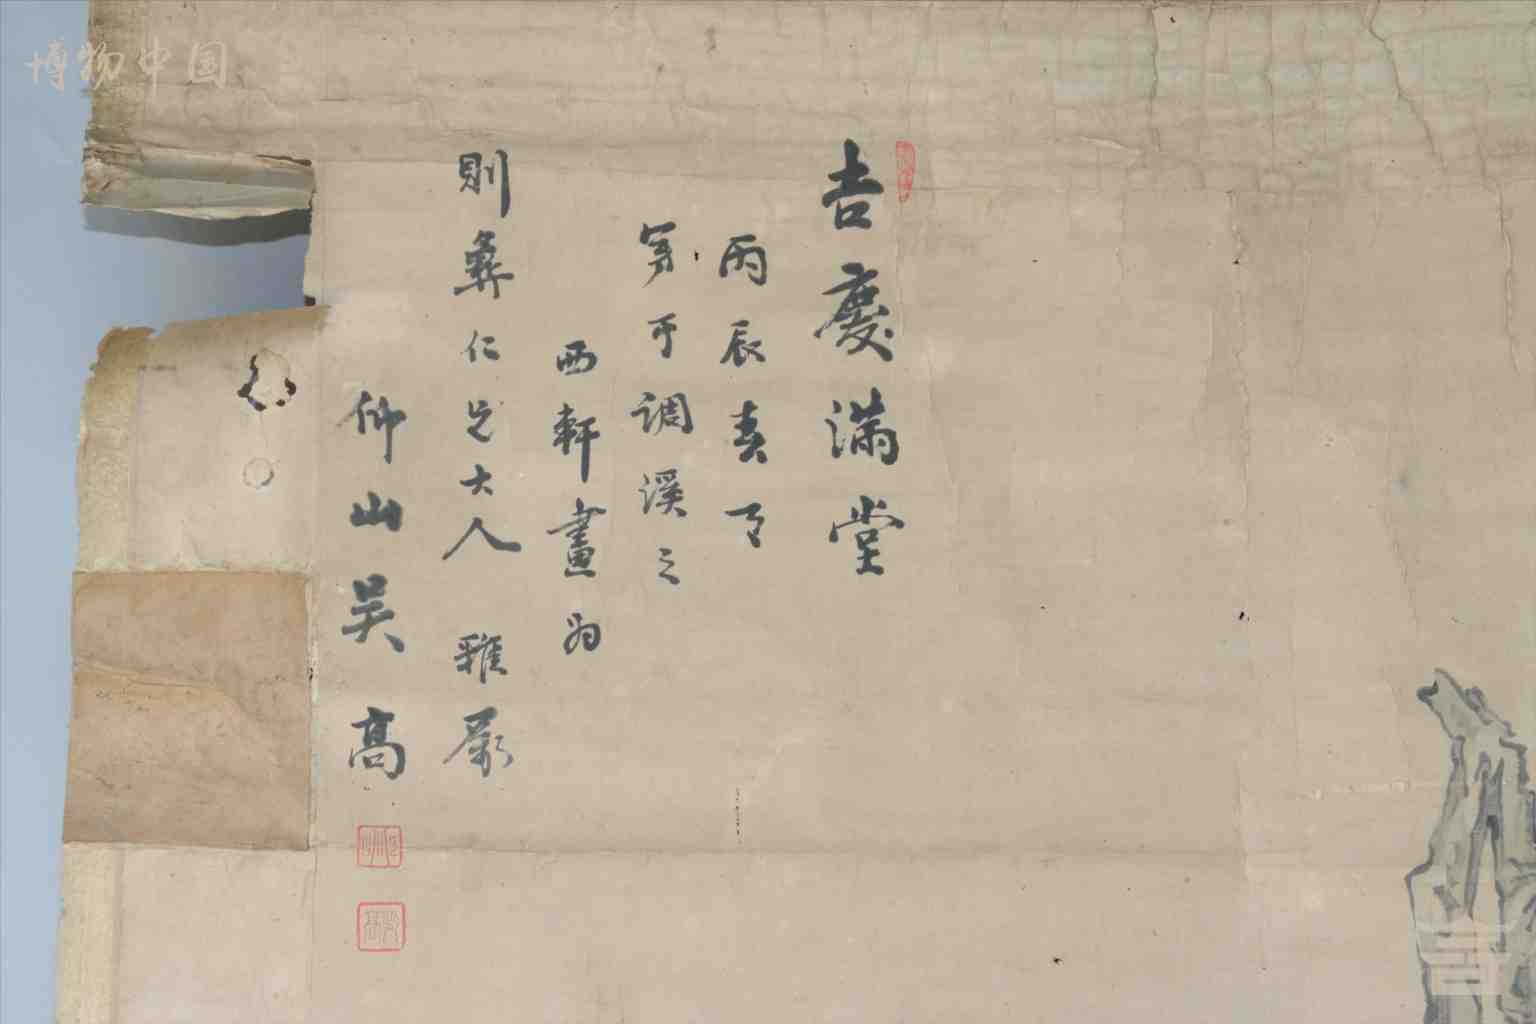 吉慶满堂
丙辰春月
寫于调溪之
西軒畫为
則彝仁兄大人 雅属
仰山吴高
博物中国